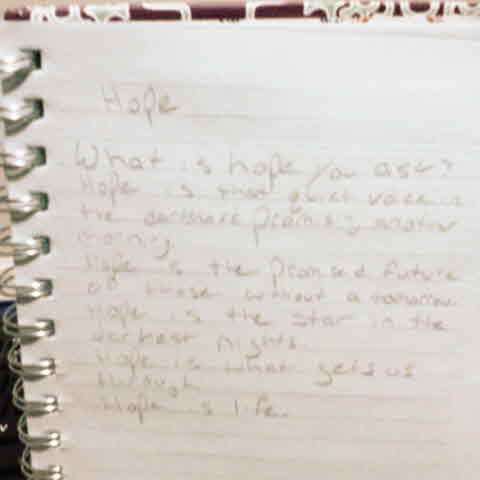 Hope
What is hope you ask?
Hope is that quiet voice in
the darkness promising another
morning.
Hope is the promised future
of those without a tomorrow.
Hope is the star in the
darkest nights.
Hope is what gets us
through.
Hope is life.